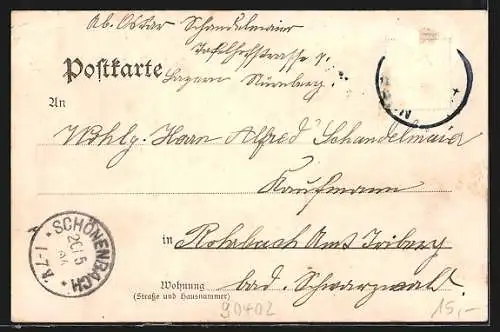 Ab. Oskar Schandelmaier
Tafelhofstrasse 7.
Postkarte Bayern Nürnberg.
An
Wohlg. Herrn Alfred Schandelmaier
Kaufmann
in Rohrbach Amt Triberg
Wohnung bad. Schwarzwald.
(Straße und Hausnummer)
SCHÖNENBACH
20 5
7-1
90402
15,-